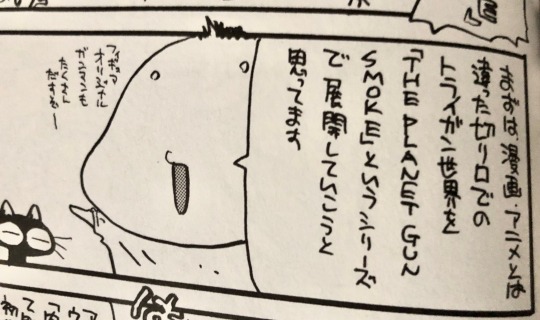 まずは、漫画・アニメとは
違った切り口での
トライガン世界を
「THE PLANET GUN
SMOKE」というシリーズ
で展開していこうと
思ってます
フィギュア
オリジナル
ガンマンも
たくさん
だすぞー